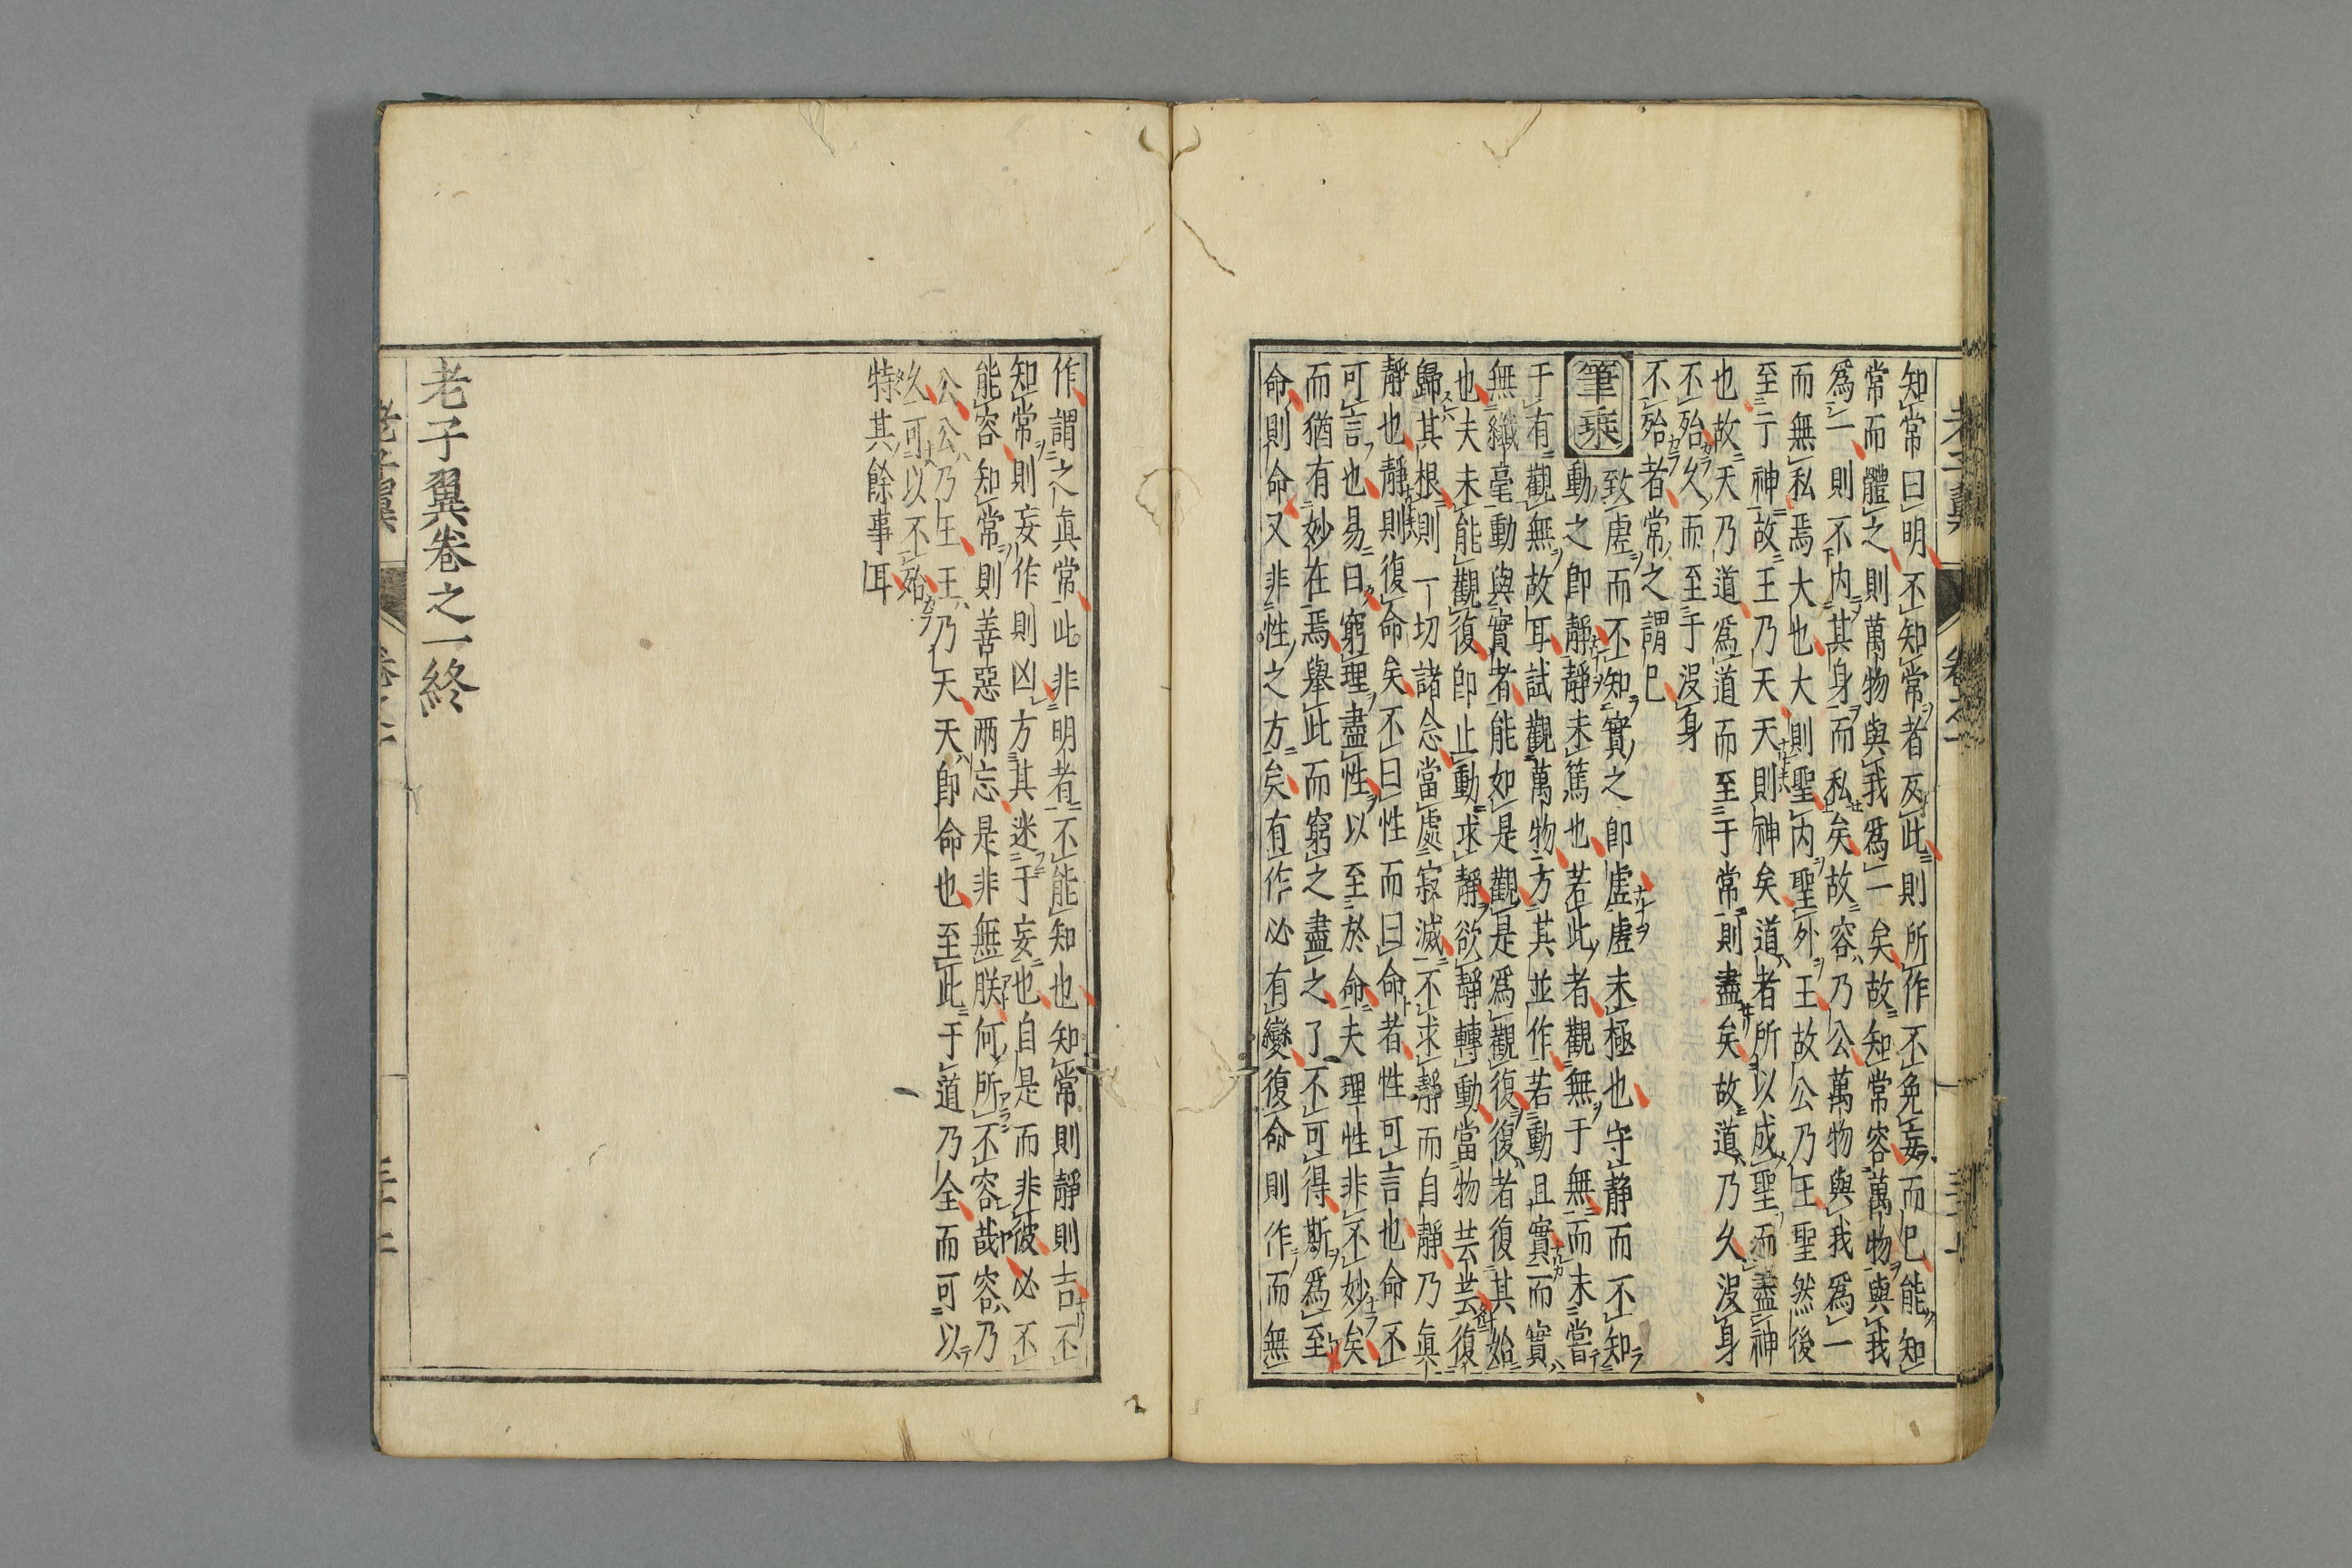 知常曰明不知常者反此則所作不免妄而已能知
常而體之則萬物與我爲一矣故知常容萬物與我
爲一則不内其身而私矣故容乃公萬物與我爲一
而無私焉大也大則聖内聖外王故公乃王聖然後
至于神故王乃天天則神矣道者所以成聖而盡神
也故天乃道爲道而至于常則盡矣故道乃久没身
不殆久而至于没身
不殆者常之謂已
筆乘
致虚而不知實之即虚虚未極也守静而不知
動之即静静未篤也若此者觀無于無而未嘗
于有觀無故耳試觀萬物方其並作若動且實而實
無纖毫動與實者能如是觀是爲觀復復者復其始
也夫未能觀復即止動求静欲静轉動當物芸芸復
歸其根則一切諸念當處寂滅不求静而自静乃真
静也静則復命矣不曰性而曰命者性可言也命不
可言也易曰窮理盡性以至於命夫理性非不妙矣
而猶有妙在焉舉此而窮之盡之了不可得斯爲至
命則命又非性之方矣有作必有變復命則作而無
作謂之真常此非明者不能知也知常則静則吉不
知常則妄作則凶方其迷于妄也自是而非彼必不
能容知常則善惡兩忘是非無朕何所不容哉容乃
公公乃王王乃天天即命也至此于道乃全而可以
久可以不殆
特其餘事耳
老子翼卷之一終